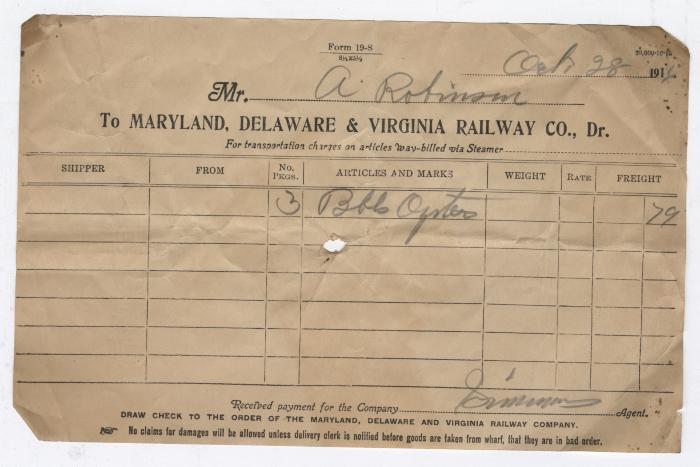 Form 19-8
8½x5½
Oct 28 191
Mr. A. Robinson
To MARYLAND, DELAWARE & VIRGINIA RAILWAY CO., Dr.
For transportation charges on articles Way-billed via Steamer
SHIPPER FROM No. PKGS. ARTICLES AND MARKS WEIGHT RATE FREIGHT
3 Bbls Oysters 79
Received payment for the Company Simmons Agent.
DRAW CHECK TO THE ORDER OF THE MARYLAND, DELAWARE AND VIRGINIA RAILWAY COMPANY.
☞ No claims for damages will be allowed unless delivery clerk is notified before goods are taken from wharf, that they are in bad order.